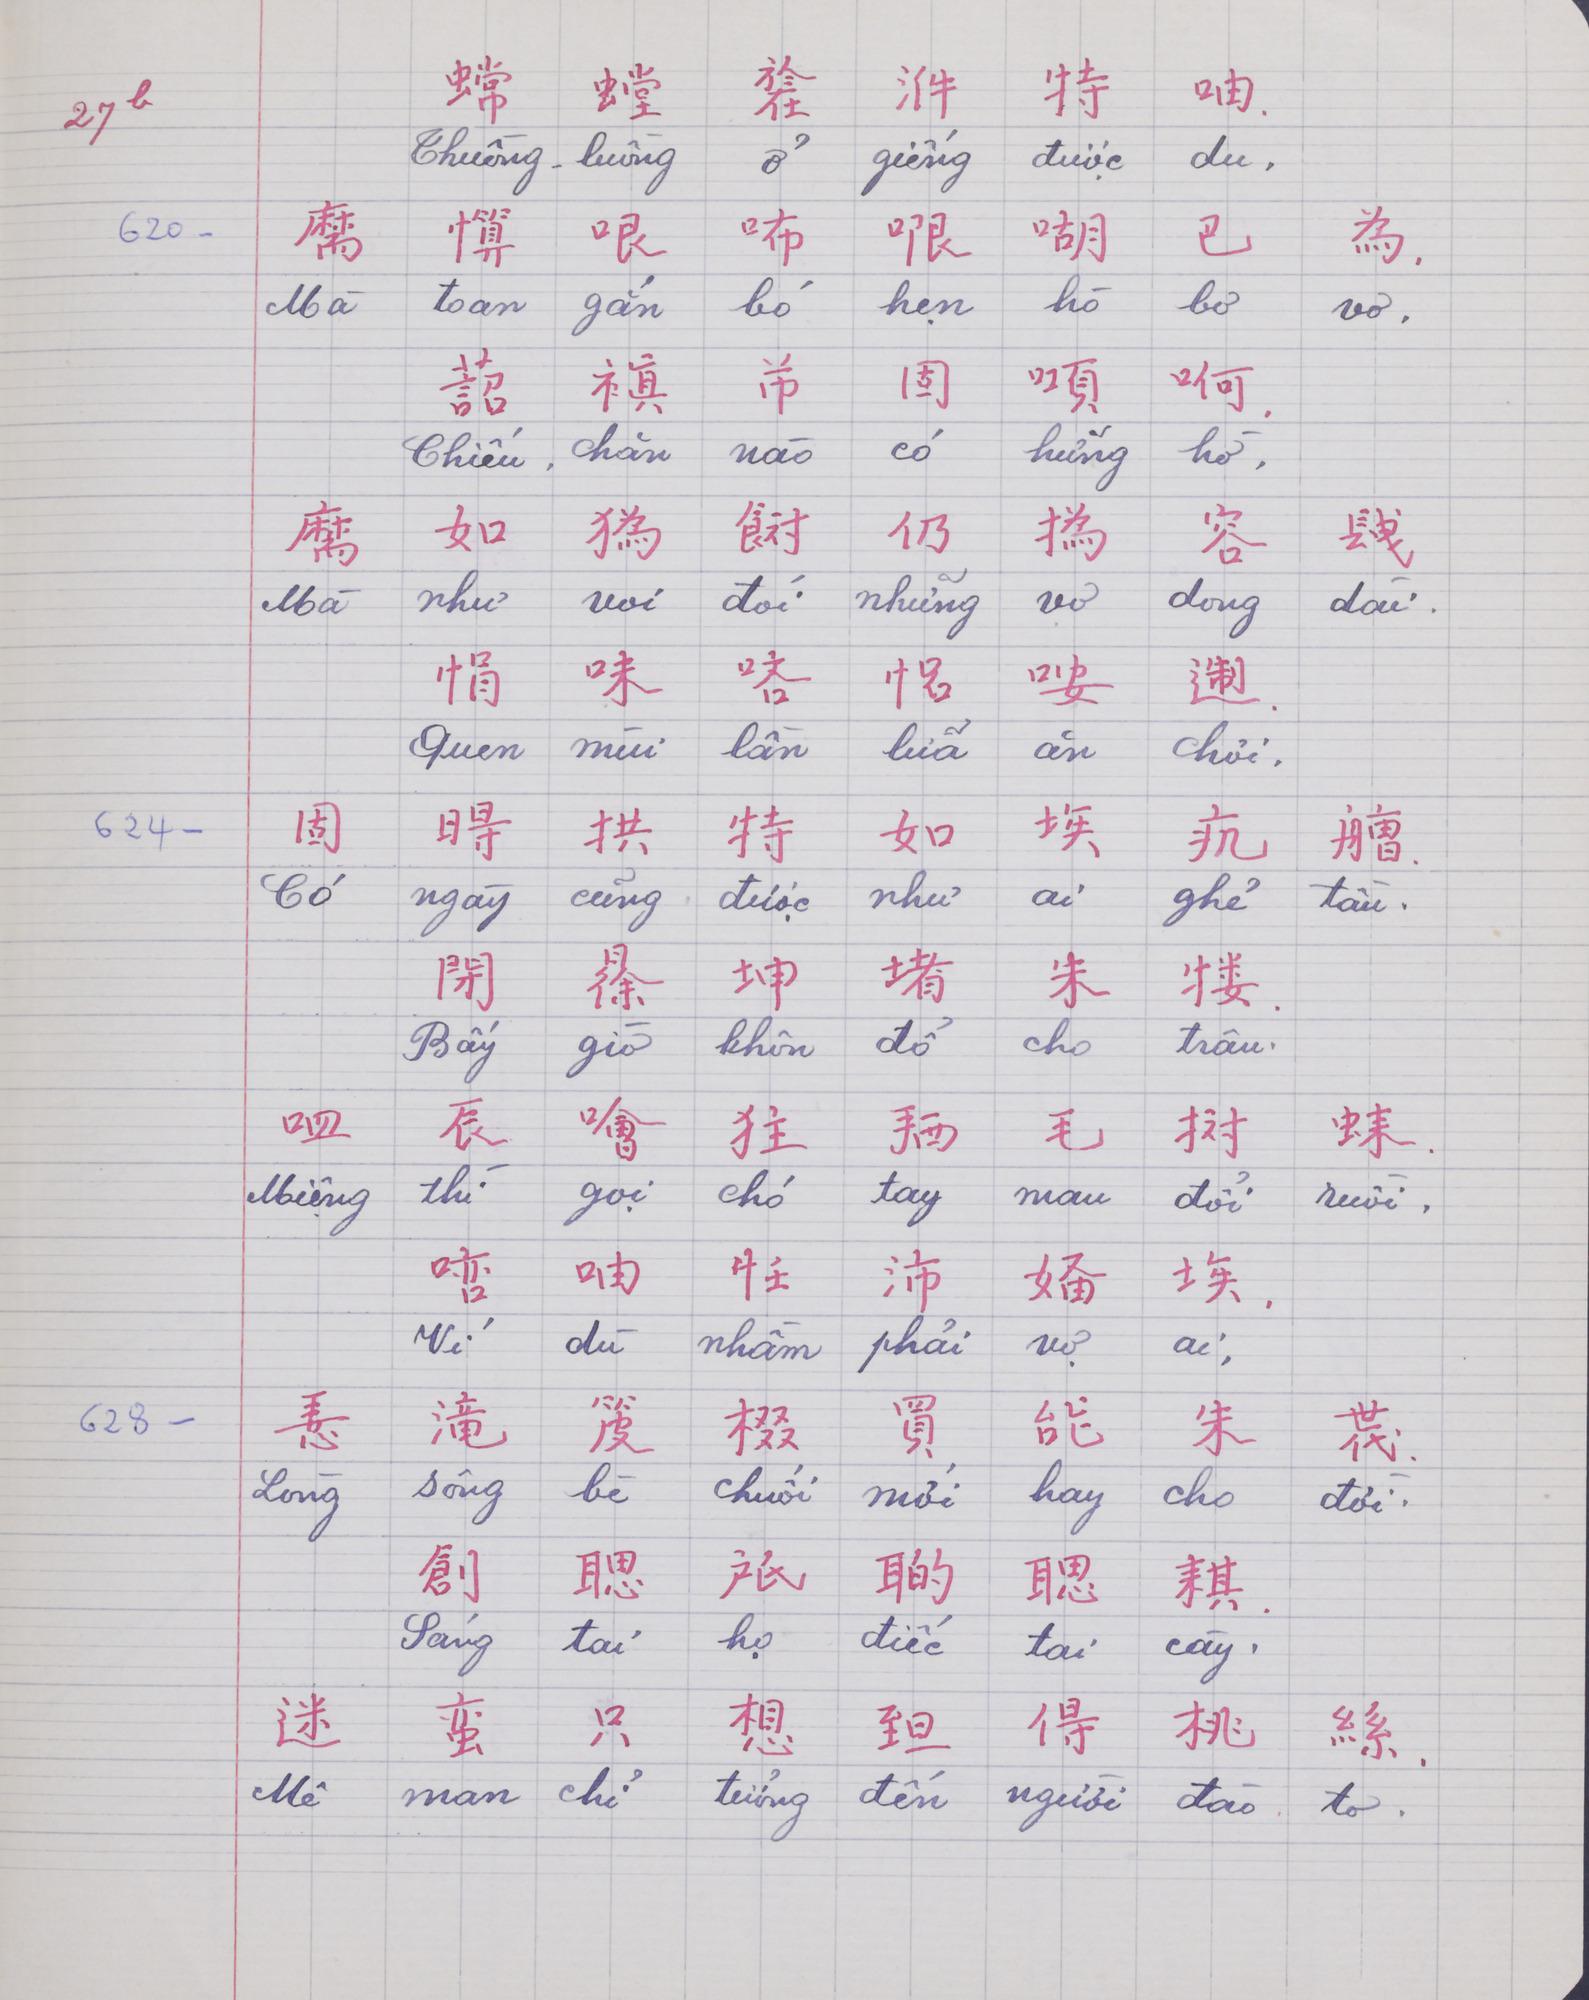 27b
蟐 螳 𨑗 汫 特 㕀.
Thuồng-luồng ở giếng được du,
620- 𦓡 惲 哏 咘 哏 咽 巴 為.
Mà toan gắn bó hẹn hò bơ vơ,
詔 禛 芇 固 㖏 啊.
Chiếu, chăn nào có hững hờ,
𦓡 如 㺔 𩛂 仍 撝 容 𨱽
Mà như voi đói những vơ dong dài.
悁 味 㗂 㤕 咹 𨔿.
Quen mùi lần lửa ăn chơi,
624- 固 𣈜 拱 特 如 埃 疘 艚.
Có ngày cũng được như ai ghẻ tầu.
閉 𣉹 坤 堵 朱 𤛠.
Bấy giờ khôn đổ cho trâu.
𠰘 辰 噲 㹥 𢬣 毛 㭲 𧋆.
Miệng thì gọi chó tay mau đổi ruồi,
㗰 㕀 𤯨 沛 𡞕 埃.
Ví dù nhầm phải vợ ai,
628- 𢚸 滝 𥴙 棳 買 能 朱 𠁀.
Lòng sông bè chuối mới hay cho đời.
創 聰 𢩜 𦖑 聰 𦓿.
Sáng tai họ điếc tai cày.
迷 蛮 只 想 𦤾 𠊛 桃 絲.
Mê man chỉ tưởng đến người đào tơ.